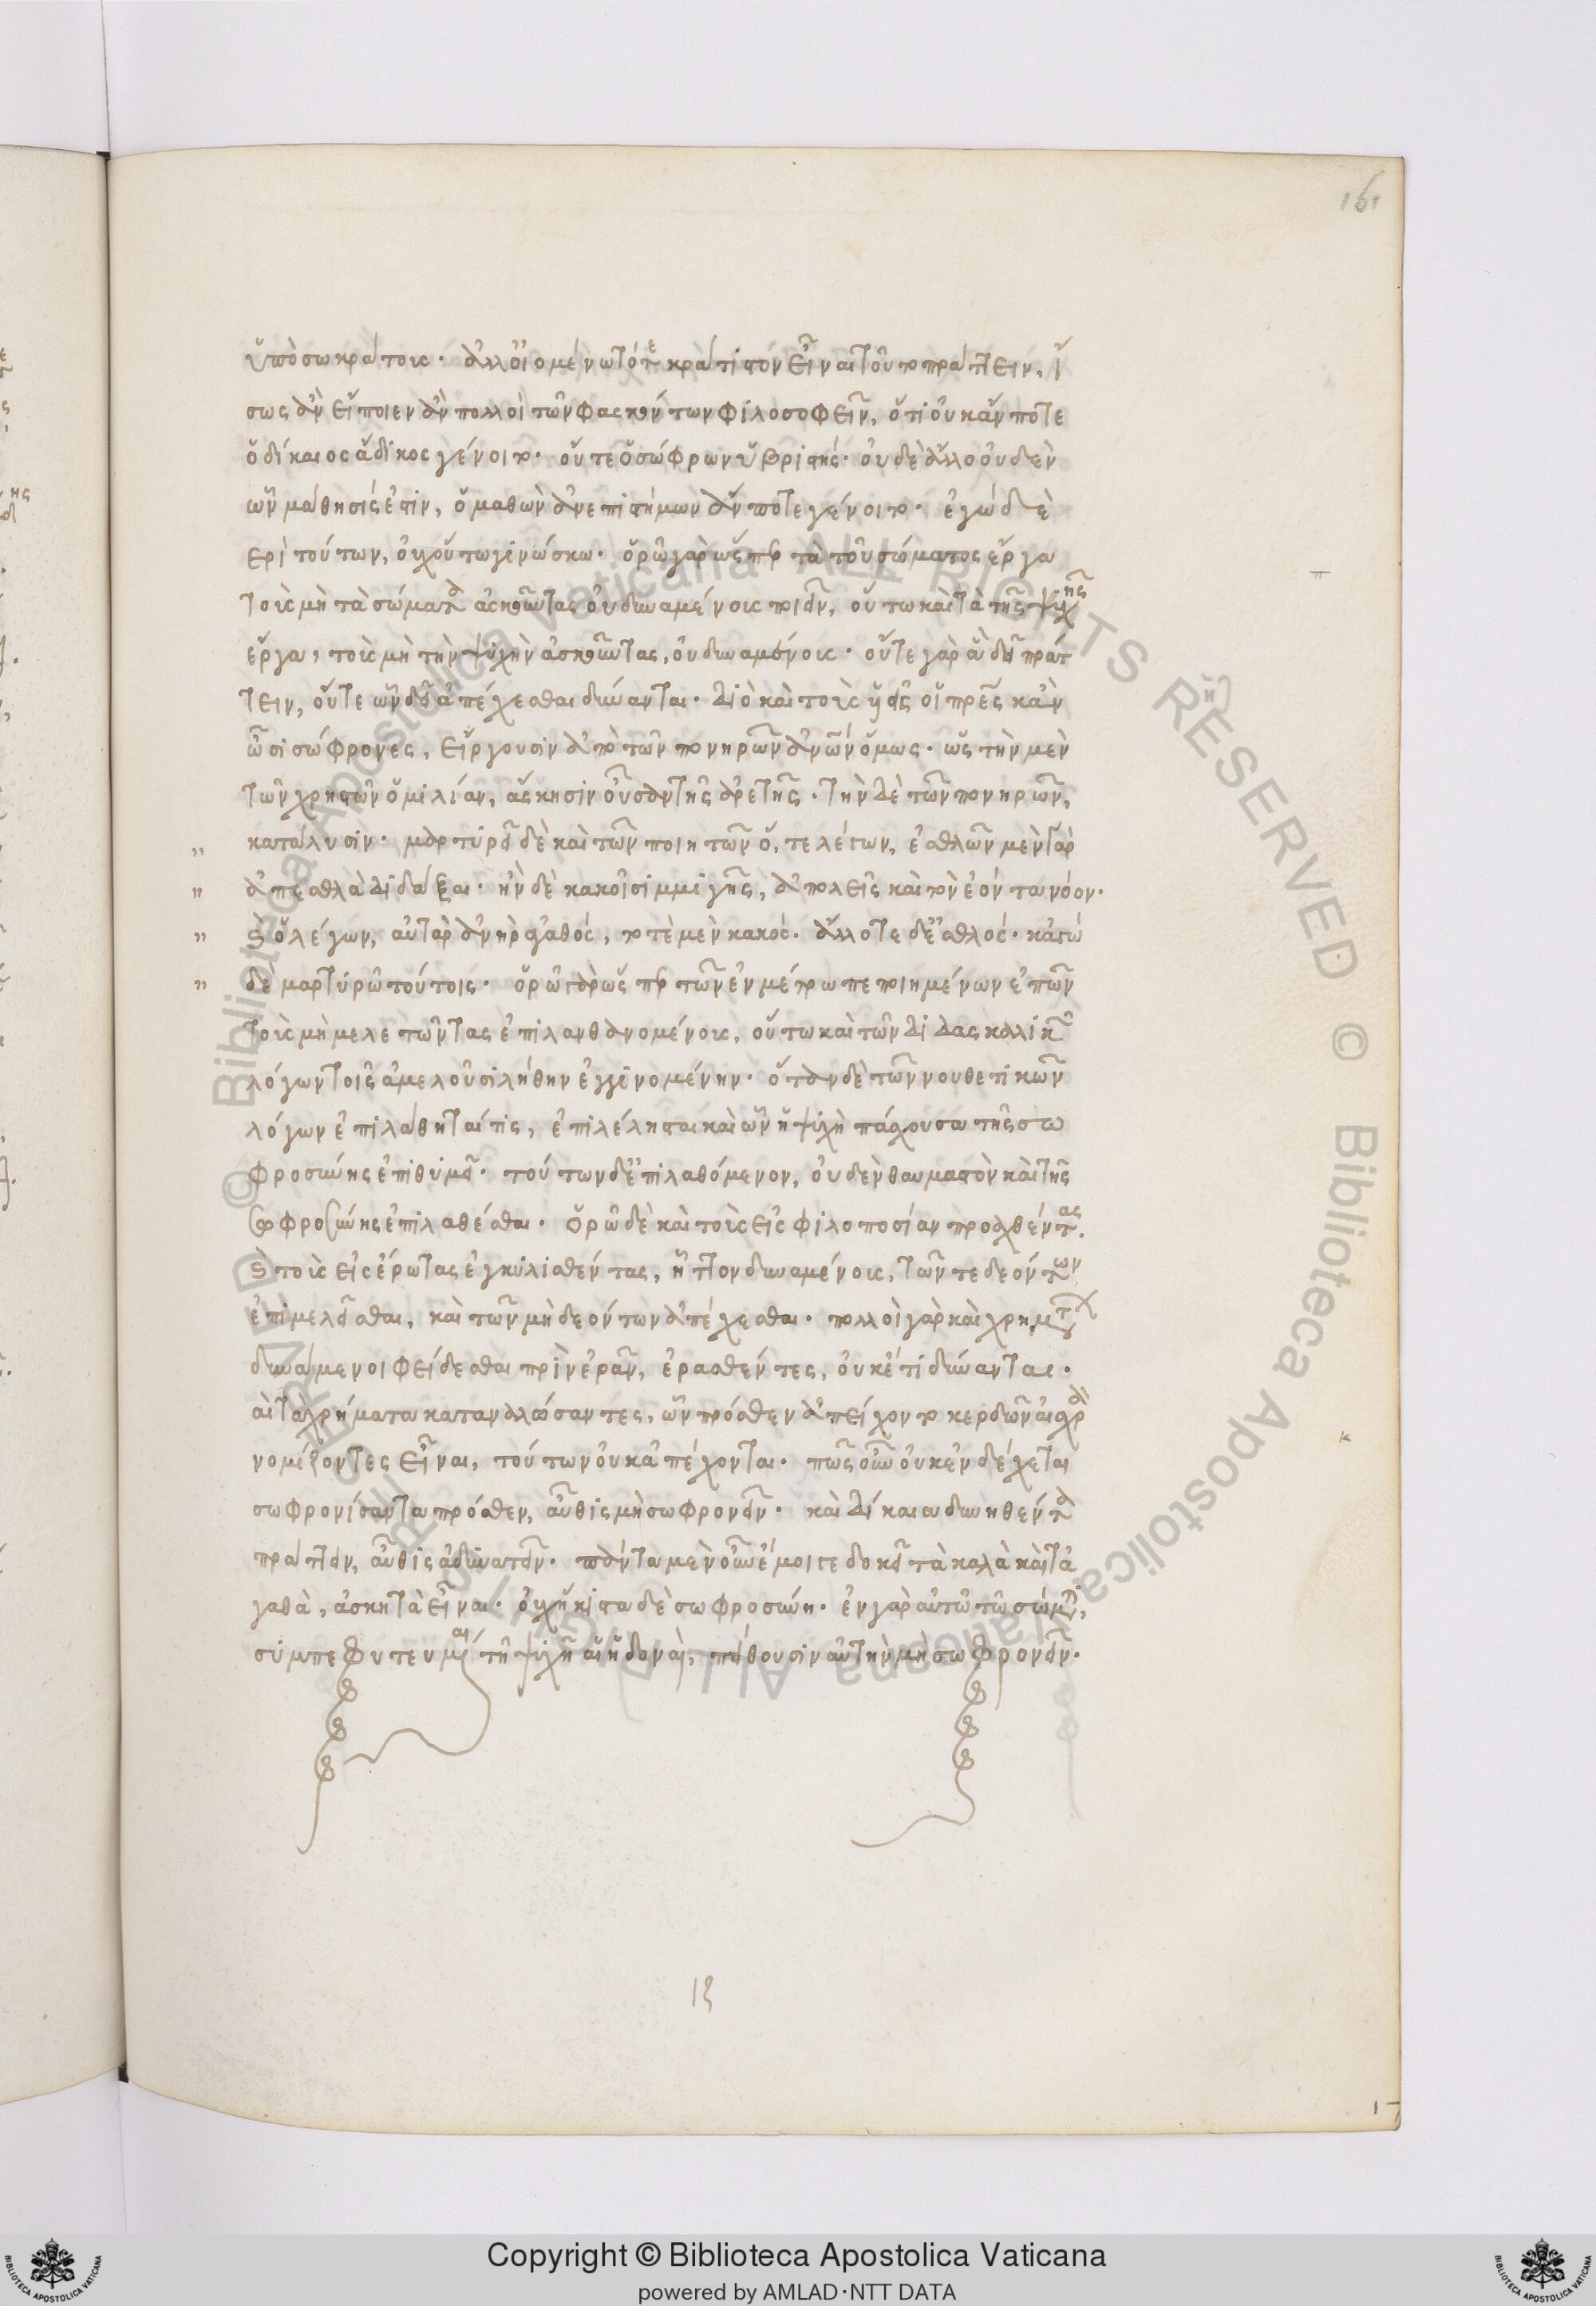 161
ὑπὸ σωκράτους· ἀλλ' οἰομένω τότε κράτιστον εἶναι τοῦτο πράττειν, ἴ
σως ἂν εἴποιεν ἂν πολλοὶ τῶν φασκόντων φιλοσοφεῖν, ὅτι οὐκ ἄν ποτε
ὁ δίκαιος ἄδικος γένοιτο· οὔτε ὁ σώφρων ὑβριστής· οὐδὲ ἄλλο οὐδὲν
ὧν μάθησίς ἐστιν, ὁ μαθὼν ἀνεπιστήμων ἄν ποτε γένοιτο· ἐγὼ δὲ
ερὶ τούτων, οὐχ οὕτω γινώσκω· ὁρῶ γὰρ ὥσπερ τὰ τοῦ σώματος ἔργα
τοὺς μὴ τὰ σώματα ἀσκοῦντας οὐ δυναμένους ποιεῖν, οὕτω καὶ τὰ τῆς ψυχῆς
ἔργα, τοὺς μὴ τὴν ψυχὴν ἀσκοῦντας, οὐ δυναμένους· οὔτε γὰρ ἃ δεῖ πράτ
τειν, οὔτε ὧν δεῖ ἀπέχεσθαι δύνανται· διὸ καὶ τοὺς υἱεῖς οἱ πρες κἂν
ὦσι σώφρονες, εἴργουσιν ἀπὸ τῶν πονηρῶν ἀνων ὅμως· ὡς τὴν μὲν
τῶν χρηστῶν ὁμιλίαν, ἄσκησιν οὖσαν τῆς ἀρετῆς· τὴν δὲ τῶν πονηρῶν,
κατάλυσιν· μαρτυρεῖ δὲ καὶ τῶν ποιητῶν ὅ, τε λέγων, ἐσθλῶν μὲν γὰρ
ἀπ' ἐσθλὰ διδάξαι· ἢν δὲ κακοῖσι μμιγῇς, ἀπολεῖς καὶ τὸν ἐόντα νόον·
καὶ ὁ λέγων, αὐτὰρ ἀνὴρ ἀγαθός, τοτὲ μὲν κακός· ἄλλοτε δ' ἐσθλός· κἀγὼ
δὲ μαρτυρῶ τούτοις· ὁρῶ γὰρ ὥσπερ τῶν ἐν μέτρω πεποιημένων ἐπῶν
τοὺς μὴ μελετῶντας ἐπιλανθανομένους, οὕτω καὶ τῶν διδασκαλικῶν
λόγων τοῖς ἀμελοῦσι λήθην ἐγγινομένην· ὅταν δὲ τῶν νουθετικῶν
λόγων ἐπιλάθηταί τις, ἐπιλέλησται καὶ ὧν ἡ ψυχὴ πάσχουσα τῆς σω
φροσύνης ἐπιθυμεῖ· τούτων δ' ἐπιλαθόμενον, οὐδὲν θαυμαστὸν καὶ τῆς
σωφροσύνης ἐπιλαθέσθαι· ὁρῶ δὲ καὶ τοὺς εἰς φιλοποσίαν προαχθέντας.
καὶ τοὺς εἰς ἔρωτας ἐγκυλισθέντας, ἧττον δυναμένους, τῶν τε δεόντων
ἐπιμελεῖσθαι, καὶ τῶν μὴ δεόντων ἀπέχεσθαι· πολλοὶ γὰρ καὶ χρημάτων
δυνάμενοι φείδεσθαι πρὶν ἐρᾶν, ἐρασθέντες, οὐκέτι δύνανται·
αὶ τὰ χρήματα καταναλώσαντες, ὧν πρόσθεν ἀπείχοντο κερδῶν αἰσχρὰ
νομίζοντες εἶναι, τούτων οὐκ ἀπέχονται· πῶς οὖν οὐκ ἐνδέχεται
σωφρονίσαντα πρόσθεν, αὖθις μὴ σωφρονεῖν· καὶ δίκαια δυνηθέντα
πράττειν, αὖθις ἀδυνατεῖν· πάντα μὲν οὖν ἔμοιγε δοκεῖ τὰ καλὰ καὶ τἀ
γαθὰ, ἀσκητὰ εἶναι· οὐχ ἥκιστα δὲ σωφροσύνη· ἐν γὰρ αὐτῶ τῶ σώματι,
συμπεφυτευμέναι τῇ ψυχῇ αἱ ἡδοναὶ, πείθουσιν αὐτὴν μὴ σωφρονεῖν·
Copyright © Biblioteca Apostolica Vaticana
powered by AMLAD·NTT DATA